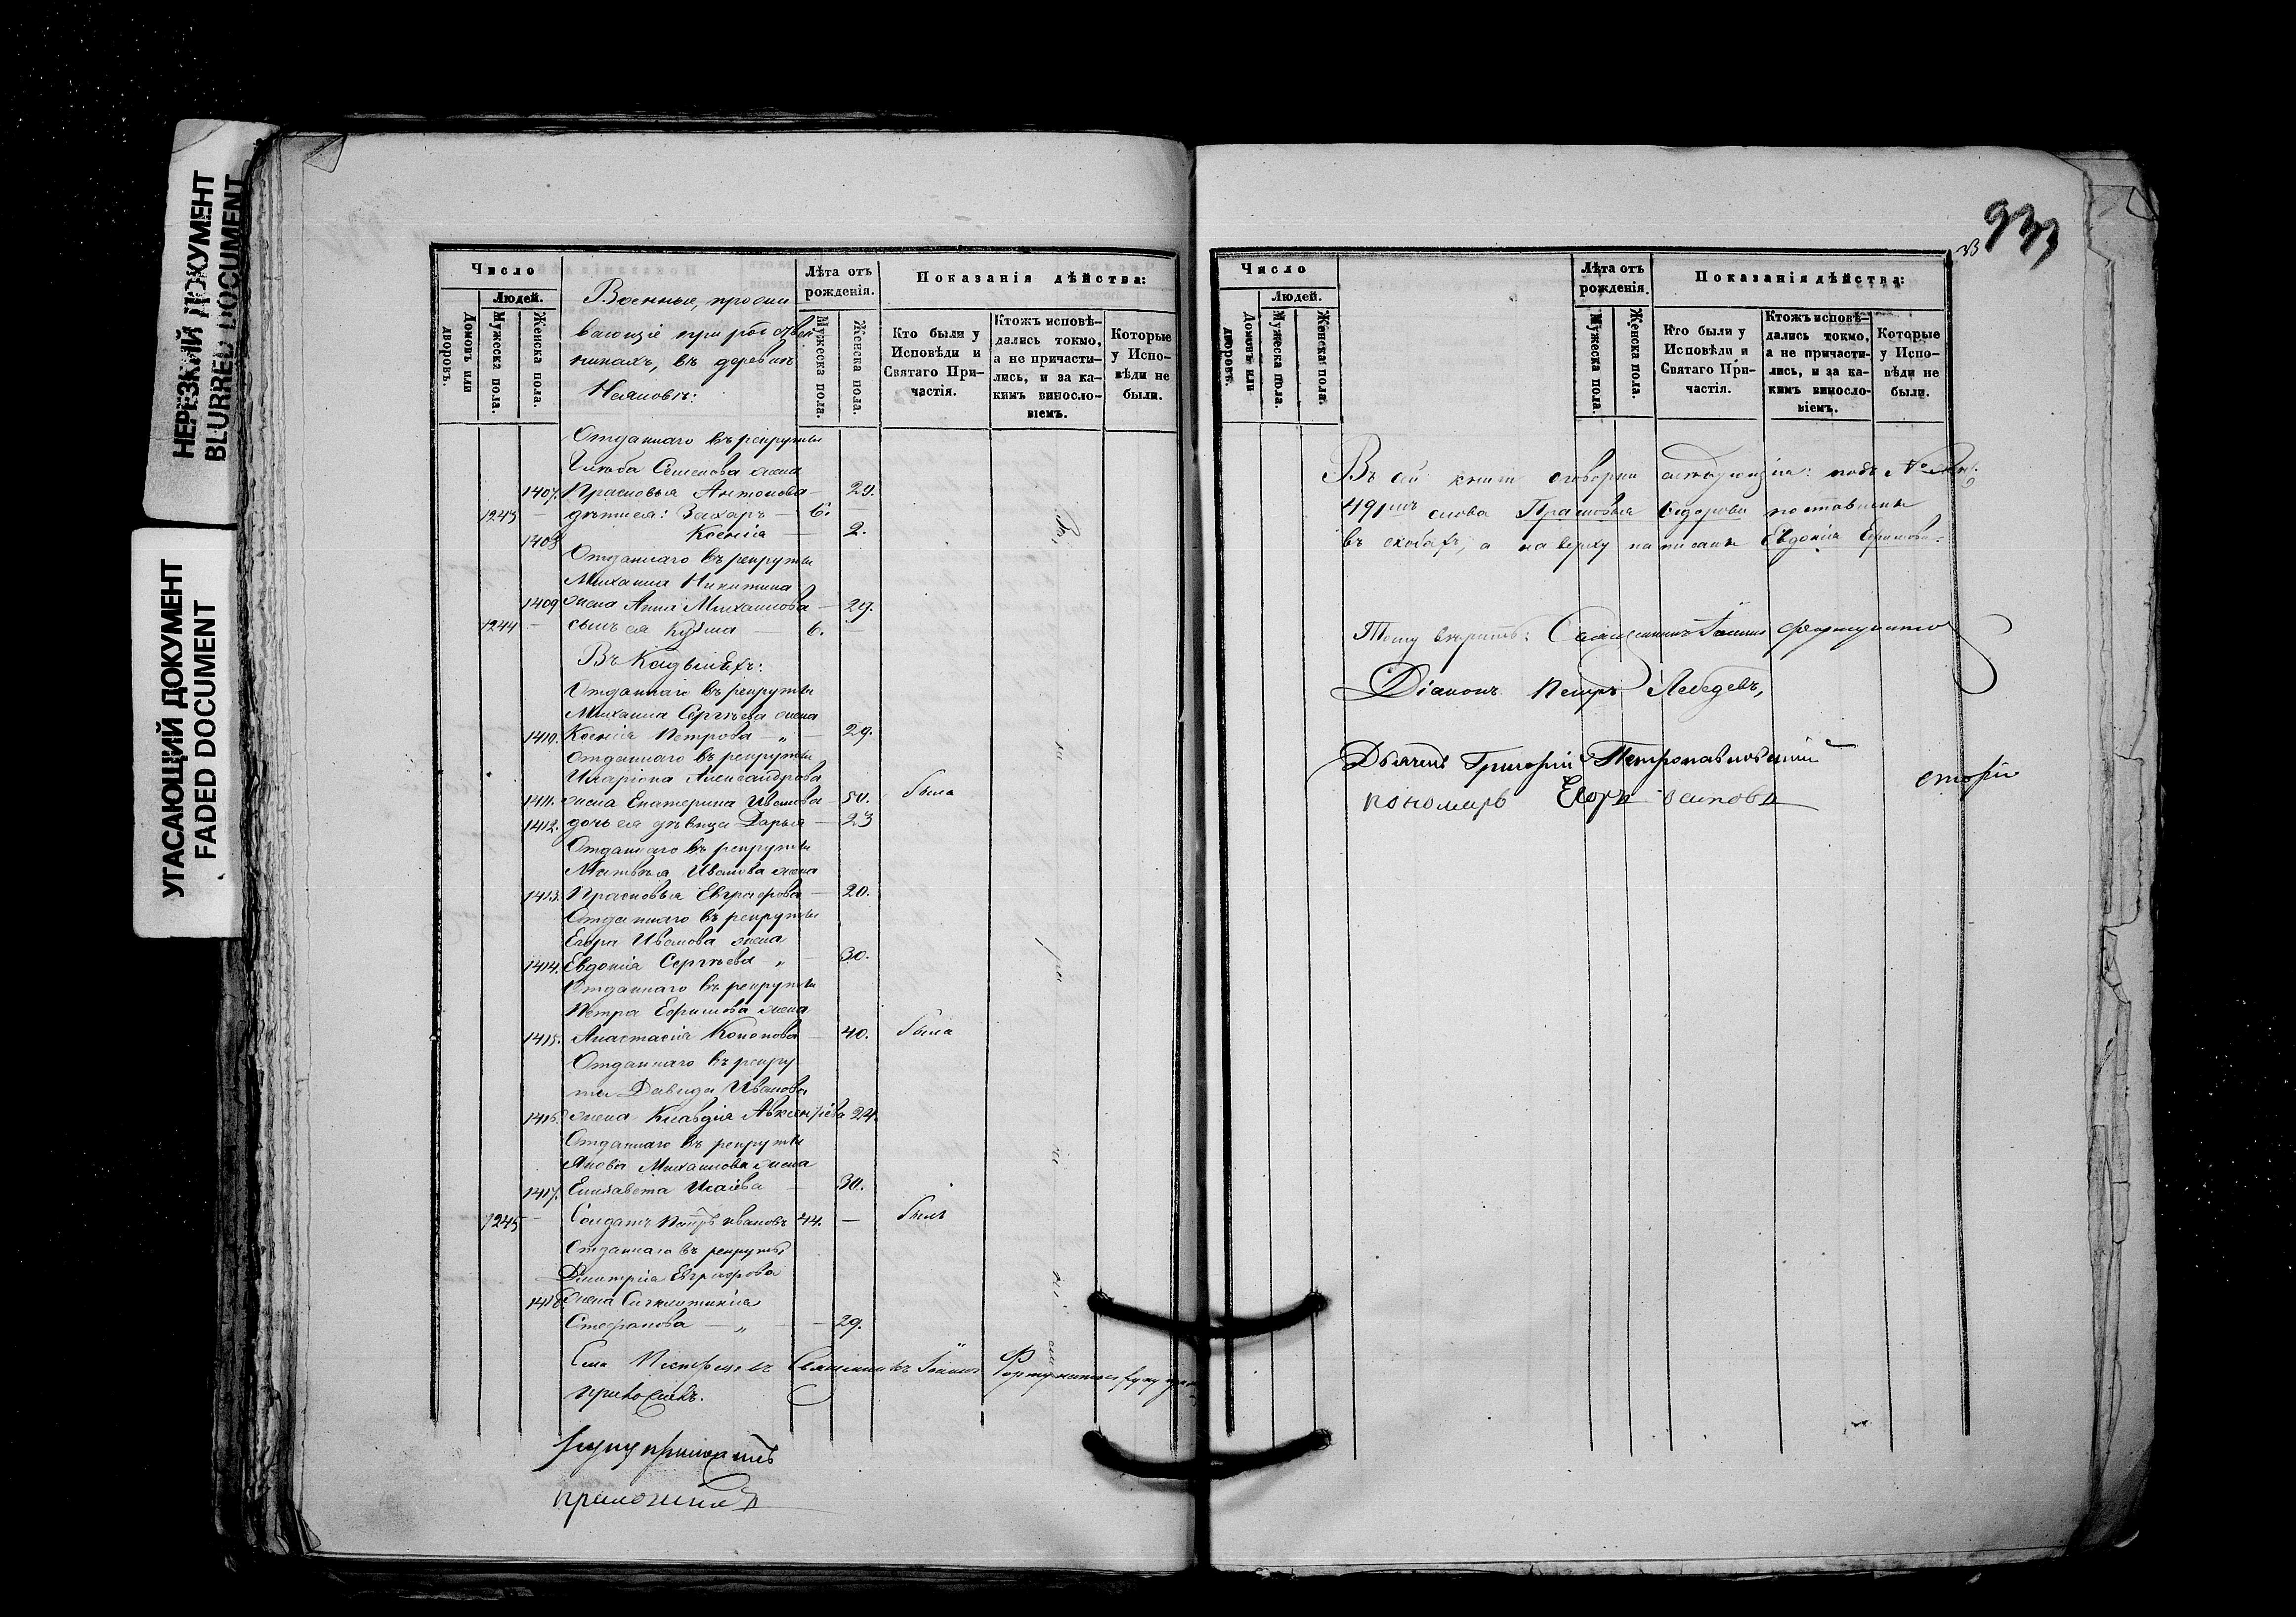 НЕРЕЗКИЙ ДОКУМЕНТ
BLURRED DOCUMENT
УГАСАЮЩИЙ ДОКУМЕНТ
FADED DOCUMENT
Число
Людей.
Домовъ или дворовъ.
Мужеска пола.
Женска пола.
Военные, прожи
вающіе при
никахъ, въ деревнѣ
Лѣта отъ рожденія.
Мужеска пола.
Женска пола.
Показанія дѣйства:
Кто были у Исповѣди и Святаго Причастія.
Ктожъ исповѣдались токмо, а не причастились, и за какимъ винословіемъ.
Которые у Исповѣди не были.
Отданнаго въ рекруты
Глѣба Семенова жена
1407. Прасковья Антонова — 29.
1243 — дѣти ея: Захаръ — 6. —
1408 Ксенія — 2.
Отданнаго въ рекруты
Михаила Никитина
1409 жена Анна Михаилова — 29.
1244 — сынъ ея Кузма — 6. —
Въ
Отданнаго въ рекруты
Михаила Сергѣева жена
1410. Ксенія Петрова — „ — 29.
Отданнаго въ рекруты
Иларіона Александрова
1411. жена Екатерина Иванова — 50. была
1412. дочь ея дѣвица Дарья — 23
Отданнаго въ рекруты
Матвѣя Иванова жена
1413. Прасковья Евграфова — 20.
Отданнаго въ рекруты
Егора Иванова жена
1414. Евдокія Сергѣева „ — 30.
Отданнаго въ рекруты
Петра Ефимова жена
1415. Анастасія Кононова — 40. была
Отданнаго въ рекру
ты Давида Иванова
1416. жена Клавдія Авксентіева 24.
Отданнаго въ рекруты
Якова Михаилова жена
1417. Елизавета Исаіева — 30.
1245 — Солдатъ Петръ Ивановъ 44. — былъ
Отданнаго въ рекруты
Димитрія Евграфова
1418 жена Синклитикія
Стефанова — „ — 29.
Священникъ Іоаннъ Фортунатовъ руку
приложилъ.
руку
приложилъ
933
Число
Людей.
Домовъ или дворовъ.
Мужеска пола.
Женска пола.
Лѣта отъ рожденія.
Мужеска пола.
Женска пола.
Показанія дѣйства:
Кто были у Исповѣди и Святаго Причастія.
Ктожъ исповѣдались токмо, а не причастились, и за какимъ винословіемъ.
Которые у Исповѣди не были.
Въ сей книгѣ оговорки слѣдующія: подъ №
491мъ слова Прасковья Ѳедорова поставлены
въ скобахъ, а на верху написаны Евдокія
Тому вѣритъ: Священникъ Іоаннъ Фортунатов
Діаконъ Петръ Лебедевъ,
Дьячекъ Григорій Петропавловскій
пономарь Егоръ